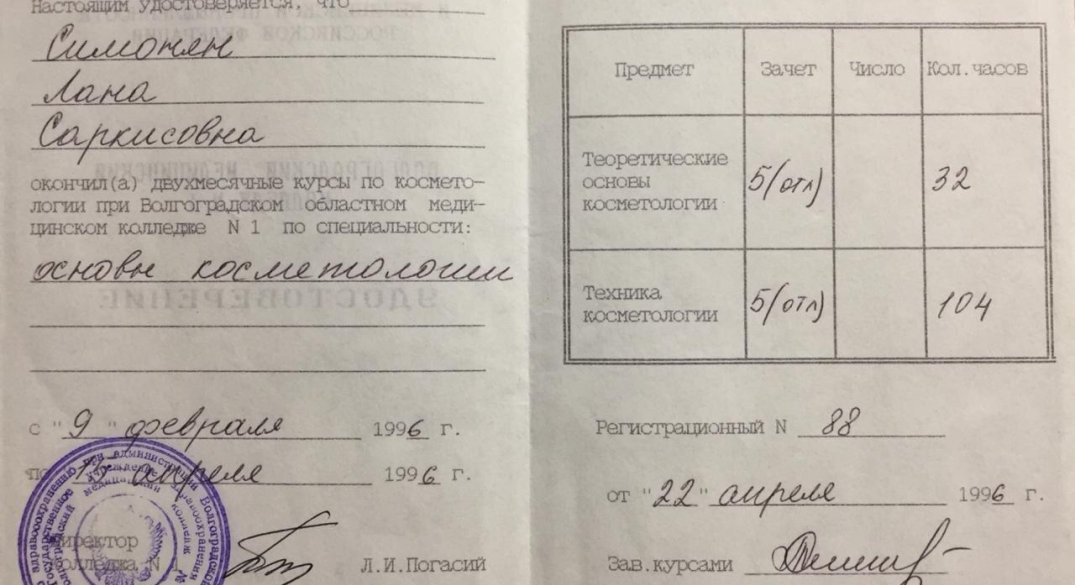 Настоящим удостоверяется, что
Симонян
Лана
Саркисовна
окончил(а) двухмесячные курсы по космето-
логии при Волгоградском областном меди-
цинском колледже N 1 по специальности:
основы косметологии
с "9" февраля 1996 г.
по апреля 1996 г.
Директор
колледжа N 1 Л.И.Погасий
Предмет Зачет Число Кол.часов
Теоретические
основы 5(отл) 32
косметологии
Техника 5(отл) 104
косметологии
Регистрационный N 88
от "22" апреля 1996 г.
Зав.курсами